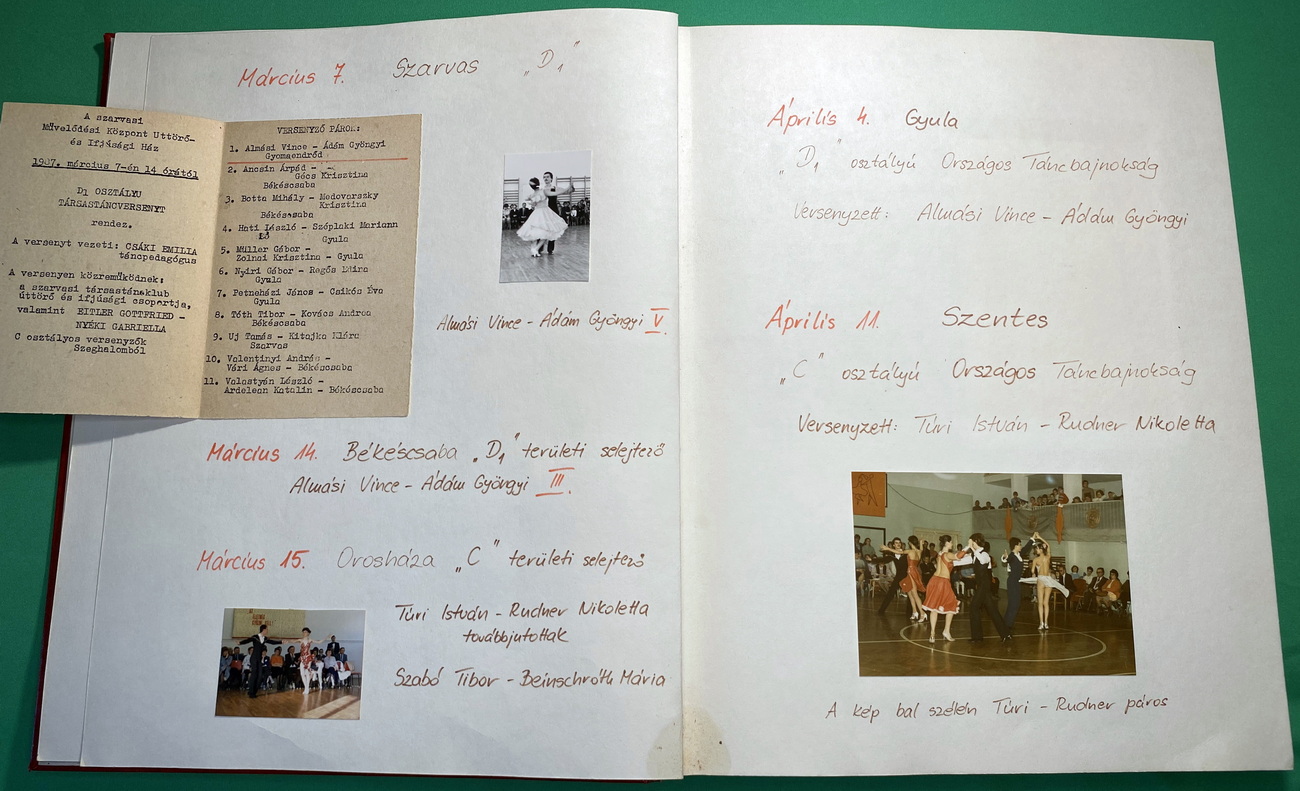 Március 7. Szarvas „D1”
A szarvasi
Művelődési Központ Úttörő-
és Ifjúsági Ház
1987. március 7-én 14 órától
D1 OSZTÁLYU
TÁRSASTÁNCVERSENYT
rendez.
A versenyt vezeti: CSÁKI EMILIA
táncpedagógus
A versenyen közreműködnek:
a szarvasi társastánsklub
úttörő és ifjúsági csoportja,
valamint EITLER GOTTFRIED -
NYÉKI GABRIELLA
C osztályos versenyzők
Szeghalomból
VERSENYZŐ PÁROK:
1. Almási Vince - Ádám Gyöngyi
Gyomaendrőd
2. Ancsin Árpád -
Gócs Krisztina
Békéscsaba
3. Botta Mihály - Medovarszky
Krisztina
Békéscsaba
4. Hati László - Széplaki Mariann
Gyula
5. Müller Gábor -
Zolnai Krisztina - Gyula
6. Nyiri Gábor - Regős
Gyula
7. Petneházi János - Csikós Éva
Gyula
8. Tóth Tibor - Kovács Andrea
Békéscsaba
9. Uj Tamás - Kitajka Klára
Szarvas
10. Valentinyi András -
Vári Ágnes - Békéscsaba
11. Valastyán László -
Ardelean Katalin - Békéscsaba
Almási Vince - Ádám Gyöngyi V.
Március 14. Békéscsaba „D1” területi selejtező
Almási Vince - Ádám Gyöngyi III.
Március 15. Orosháza „C” területi selejtező
Túri István - Rudner Nikoletta
továbbjutottak
Szabó Tibor - Beinschróth Mária
Április 4. Gyula
„D1” osztályú Országos Táncbajnokság
Versenyzett: Almási Vince - Ádám Gyöngyi
Április 11. Szentes
„C” osztályú Országos Táncbajnokság
Versenyzett: Túri István - Rudner Nikoletta
A kép bal szélén Túri - Rudner páros